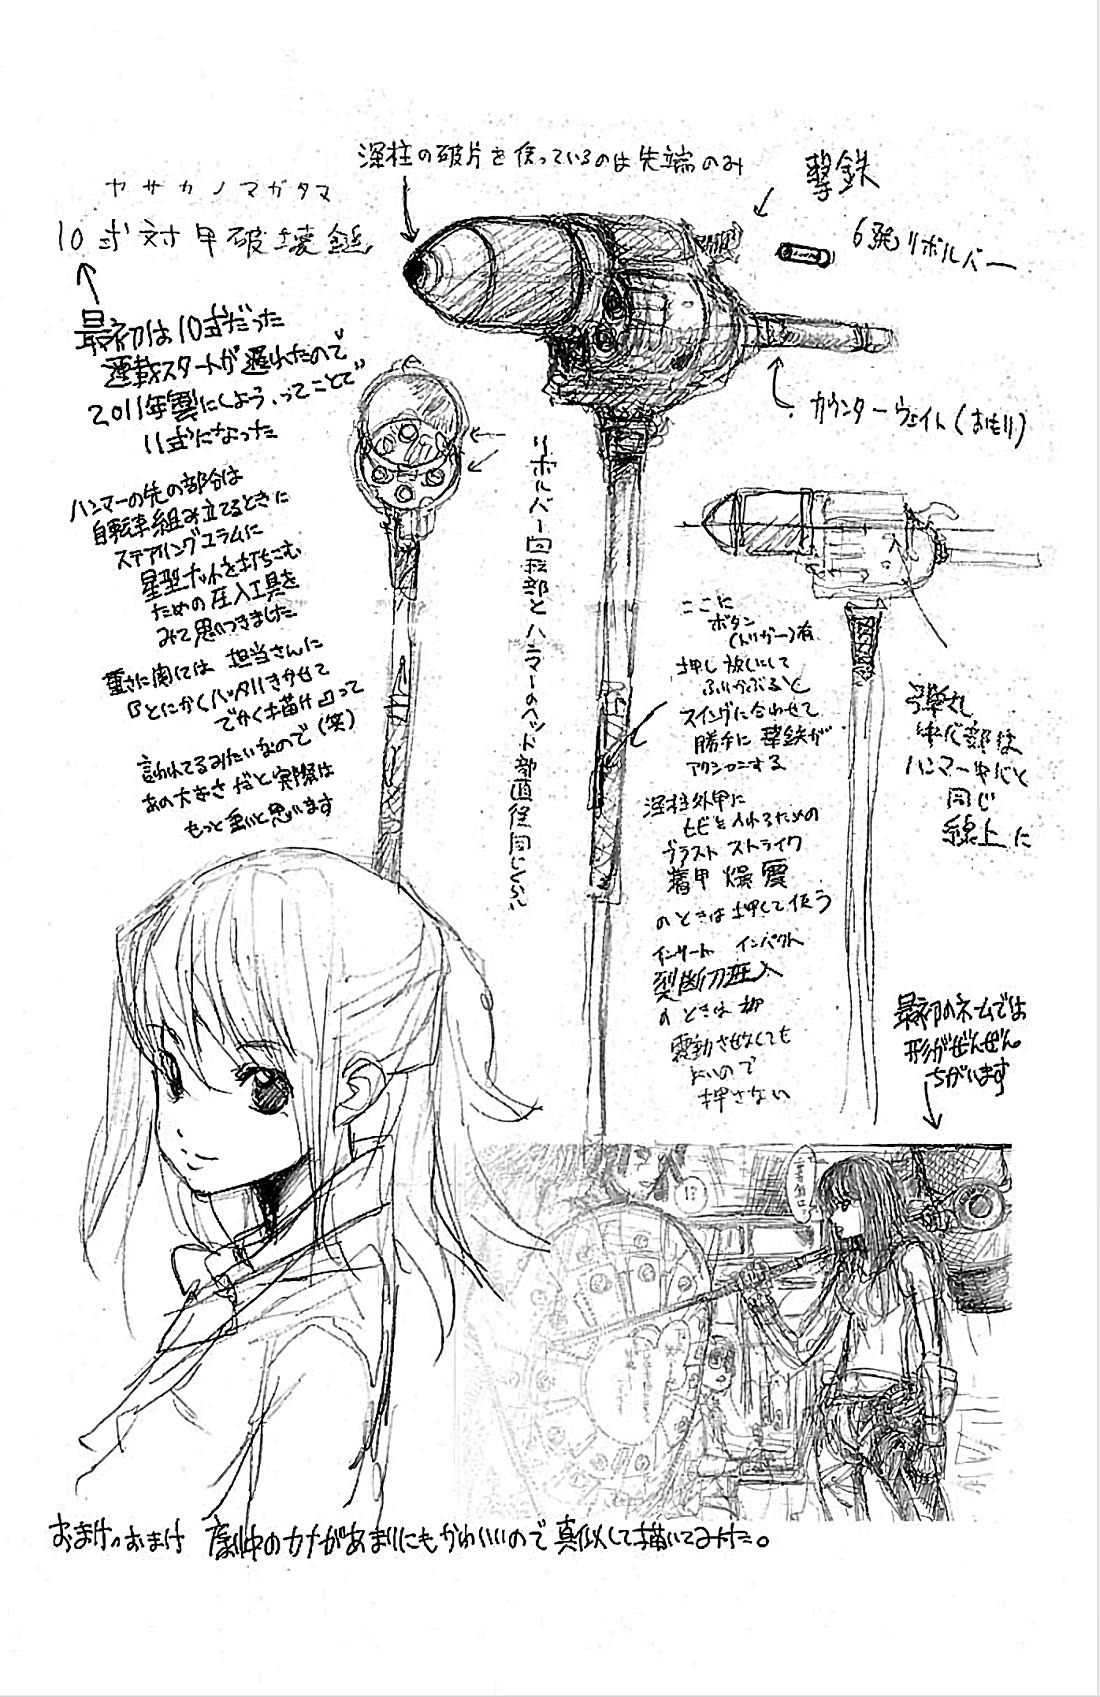 深柱の破片を使っているのは先端のみ
撃鉄
6発リボルバー
ヤサカノマガタマ
10式対甲破壊鎚
最初は10式だった
連載スタートが遅れたので
2011年製にしよう、ってことで
11式になった
カウンターウェイト(おもり)
ハンマーの先の部分は
自転車組み立てるときに
ステアリングコラムに
星型ナットを打ちこむ
ための圧入工具を
みて思いつきました
重さに関しては 担当さんに
『とにかくハッタリきかせて
でかく描け』って
言われてるみたいなので(笑)
あの大きさだと実際は
もっと重いと思います
リボルバー回転部とハンマーのヘッド部直径同じくらい
ここに
ボタン
(トリガー)有
押し放しにして
ふりかぶると
スイングに合わせて
勝手に撃鉄が
アクションする
深柱外甲に
ヒビを入れるための
ブラスト ストライク
着甲爆震
のときは押して使う
インサート インパクト
裂断刃圧入
のときは
震動させなくても
よいので
押さない
弾丸
中心部は
ハンマー中心と
同じ
線上に
最初のネームでは
形がぜんぜん
ちがいます
!?
おまけのおまけ 劇中のカナがあまりにもかわいいので真似して描いてみた。